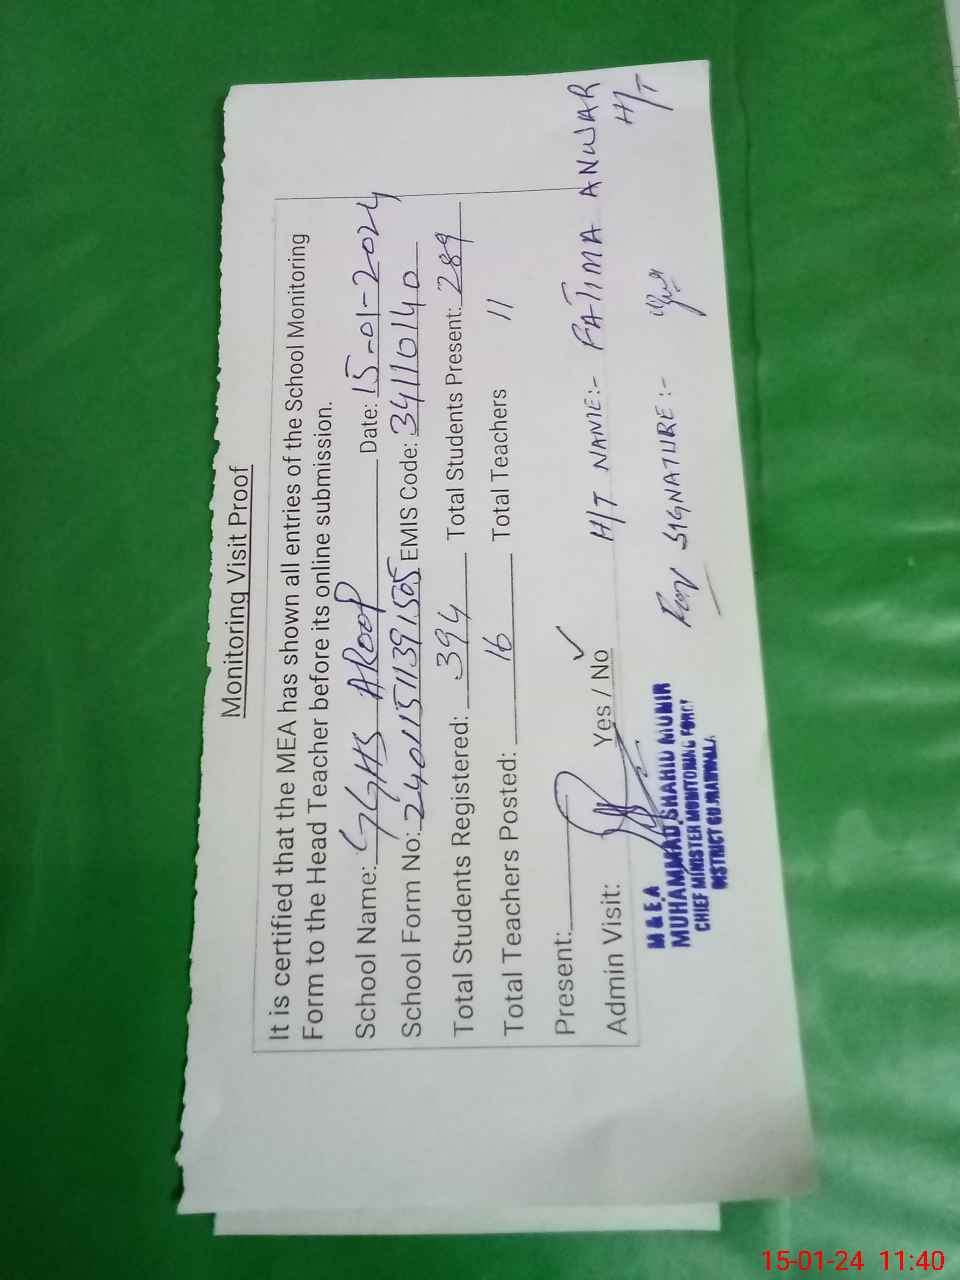 Monitoring Visit Proof
It is certified that the MEA has shown all entries of the School Monitoring
Form to the Head Teacher before its online submission.
School Name: GGHS AROOP Date: 15-01-2024
School Form No: 24011511391505 EMIS Code: 34110140
Total Students Registered: 394 Total Students Present: 289
Total Teachers Posted: 16 Total Teachers 11
Present:
Admin Visit: Yes / No ✓
H/T NAME:- FATIMA ANWAR
H/T
SIGNATURE:-
M & E.A
MUHAMMAD SHAHID MUNIR
CHIEF MINISTER MONITORING FORCE
DISTRICT GUJRANWALA.
15-01-24 11:40